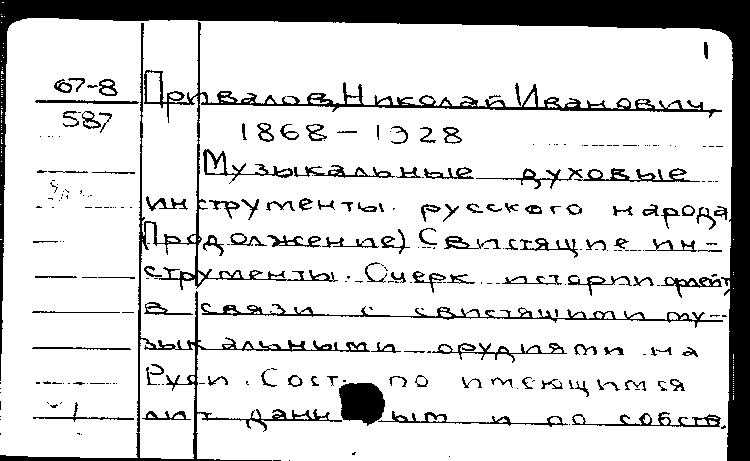 1
67-8 Привалов, Николай Иванович,
587 1868-1928
Музыкальные духовые
инструменты русского народа.
(Продолжение) Свистящие ин-
струменты. Очерк истории флейт,
в связи с свистящими му-
зыкальными орудиями на
Руси. Сост. по имеющимся
лит данным и по собств.